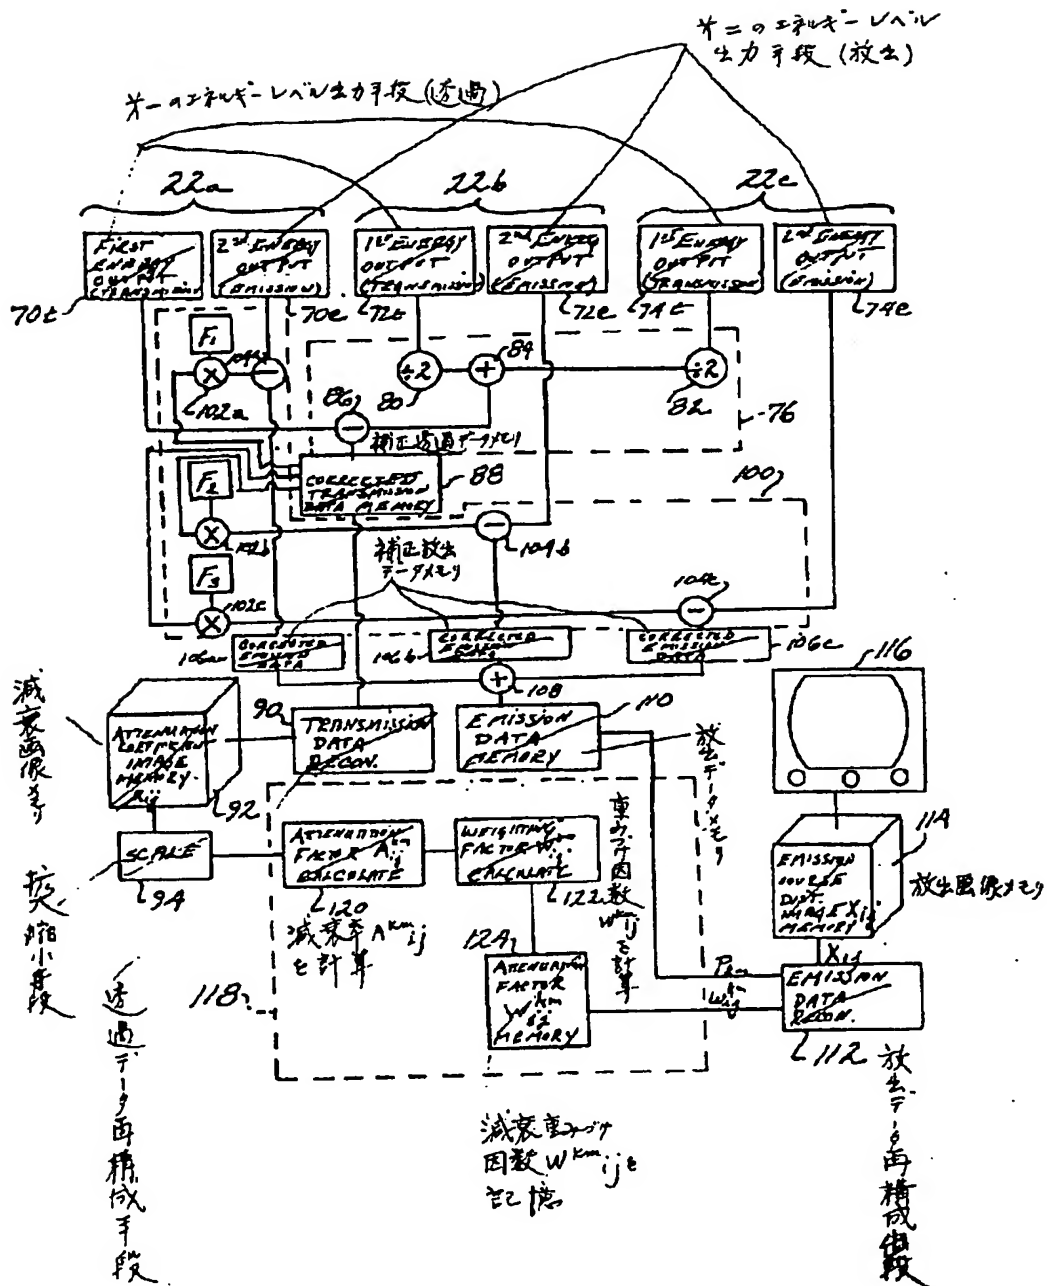 オニのエネルギーレベル
出力手段(放出)
オーのエネルギーレベル出力手段(透過)
22a
22b
22c
FIRST
ENERGY
OUTPUT
(TRANSMISSION)
2nd ENERGY
OUTPUT
(EMISSION)
1st ENERGY
OUTPUT
(TRANSMISSION)
2nd ENERGY
OUTPUT
(EMISSION)
1st ENERGY
OUTPUT
(TRANSMISSION)
2nd ENERGY
OUTPUT
(EMISSION)
70t
70e
72t
72e
74t
74e
F1
104a
×
−
102a
÷2
80
+
84
÷2
82
76
86
−
補正透過データメモリ
CORRECTED
TRANSMISSION
DATA MEMORY
88
100
F2
×
102b
−
104b
補正放出
データメモリ
F3
×
102c
104c
−
106a
CORRECTED
EMISSION
DATA
106b
CORRECTED
EMISSION
DATA
CORRECTED
EMISSION
DATA
106c
+
108
116
減衰画像メモリ
ATTENUATION
COEFFICIENT
IMAGE
MEMORY
92
90
TRANSMISSION
DATA
RECON.
EMISSION
DATA
MEMORY
110
放出データメモリ
SCALE
94
拡大縮小手段
ATTENUATION
FACTOR A km ij
CALCULATE
120
減衰率A km ij
を計算
WEIGHTING
FACTOR W km ij
CALCULATE
122
重みづけ因数W km ijを計算
114
EMISSION
SOURCE
DIST.
IMAGE Xij
MEMORY
放出画像メモリ
Xij
124
ATTENUATION
FACTOR
W km
ij
MEMORY
118
Pkm
W km ij
EMISSION
DATA
RECON.
112
透過データ再構成手段
減衰重みづけ
因数W km ijを
記憶
放出データ再構成手段